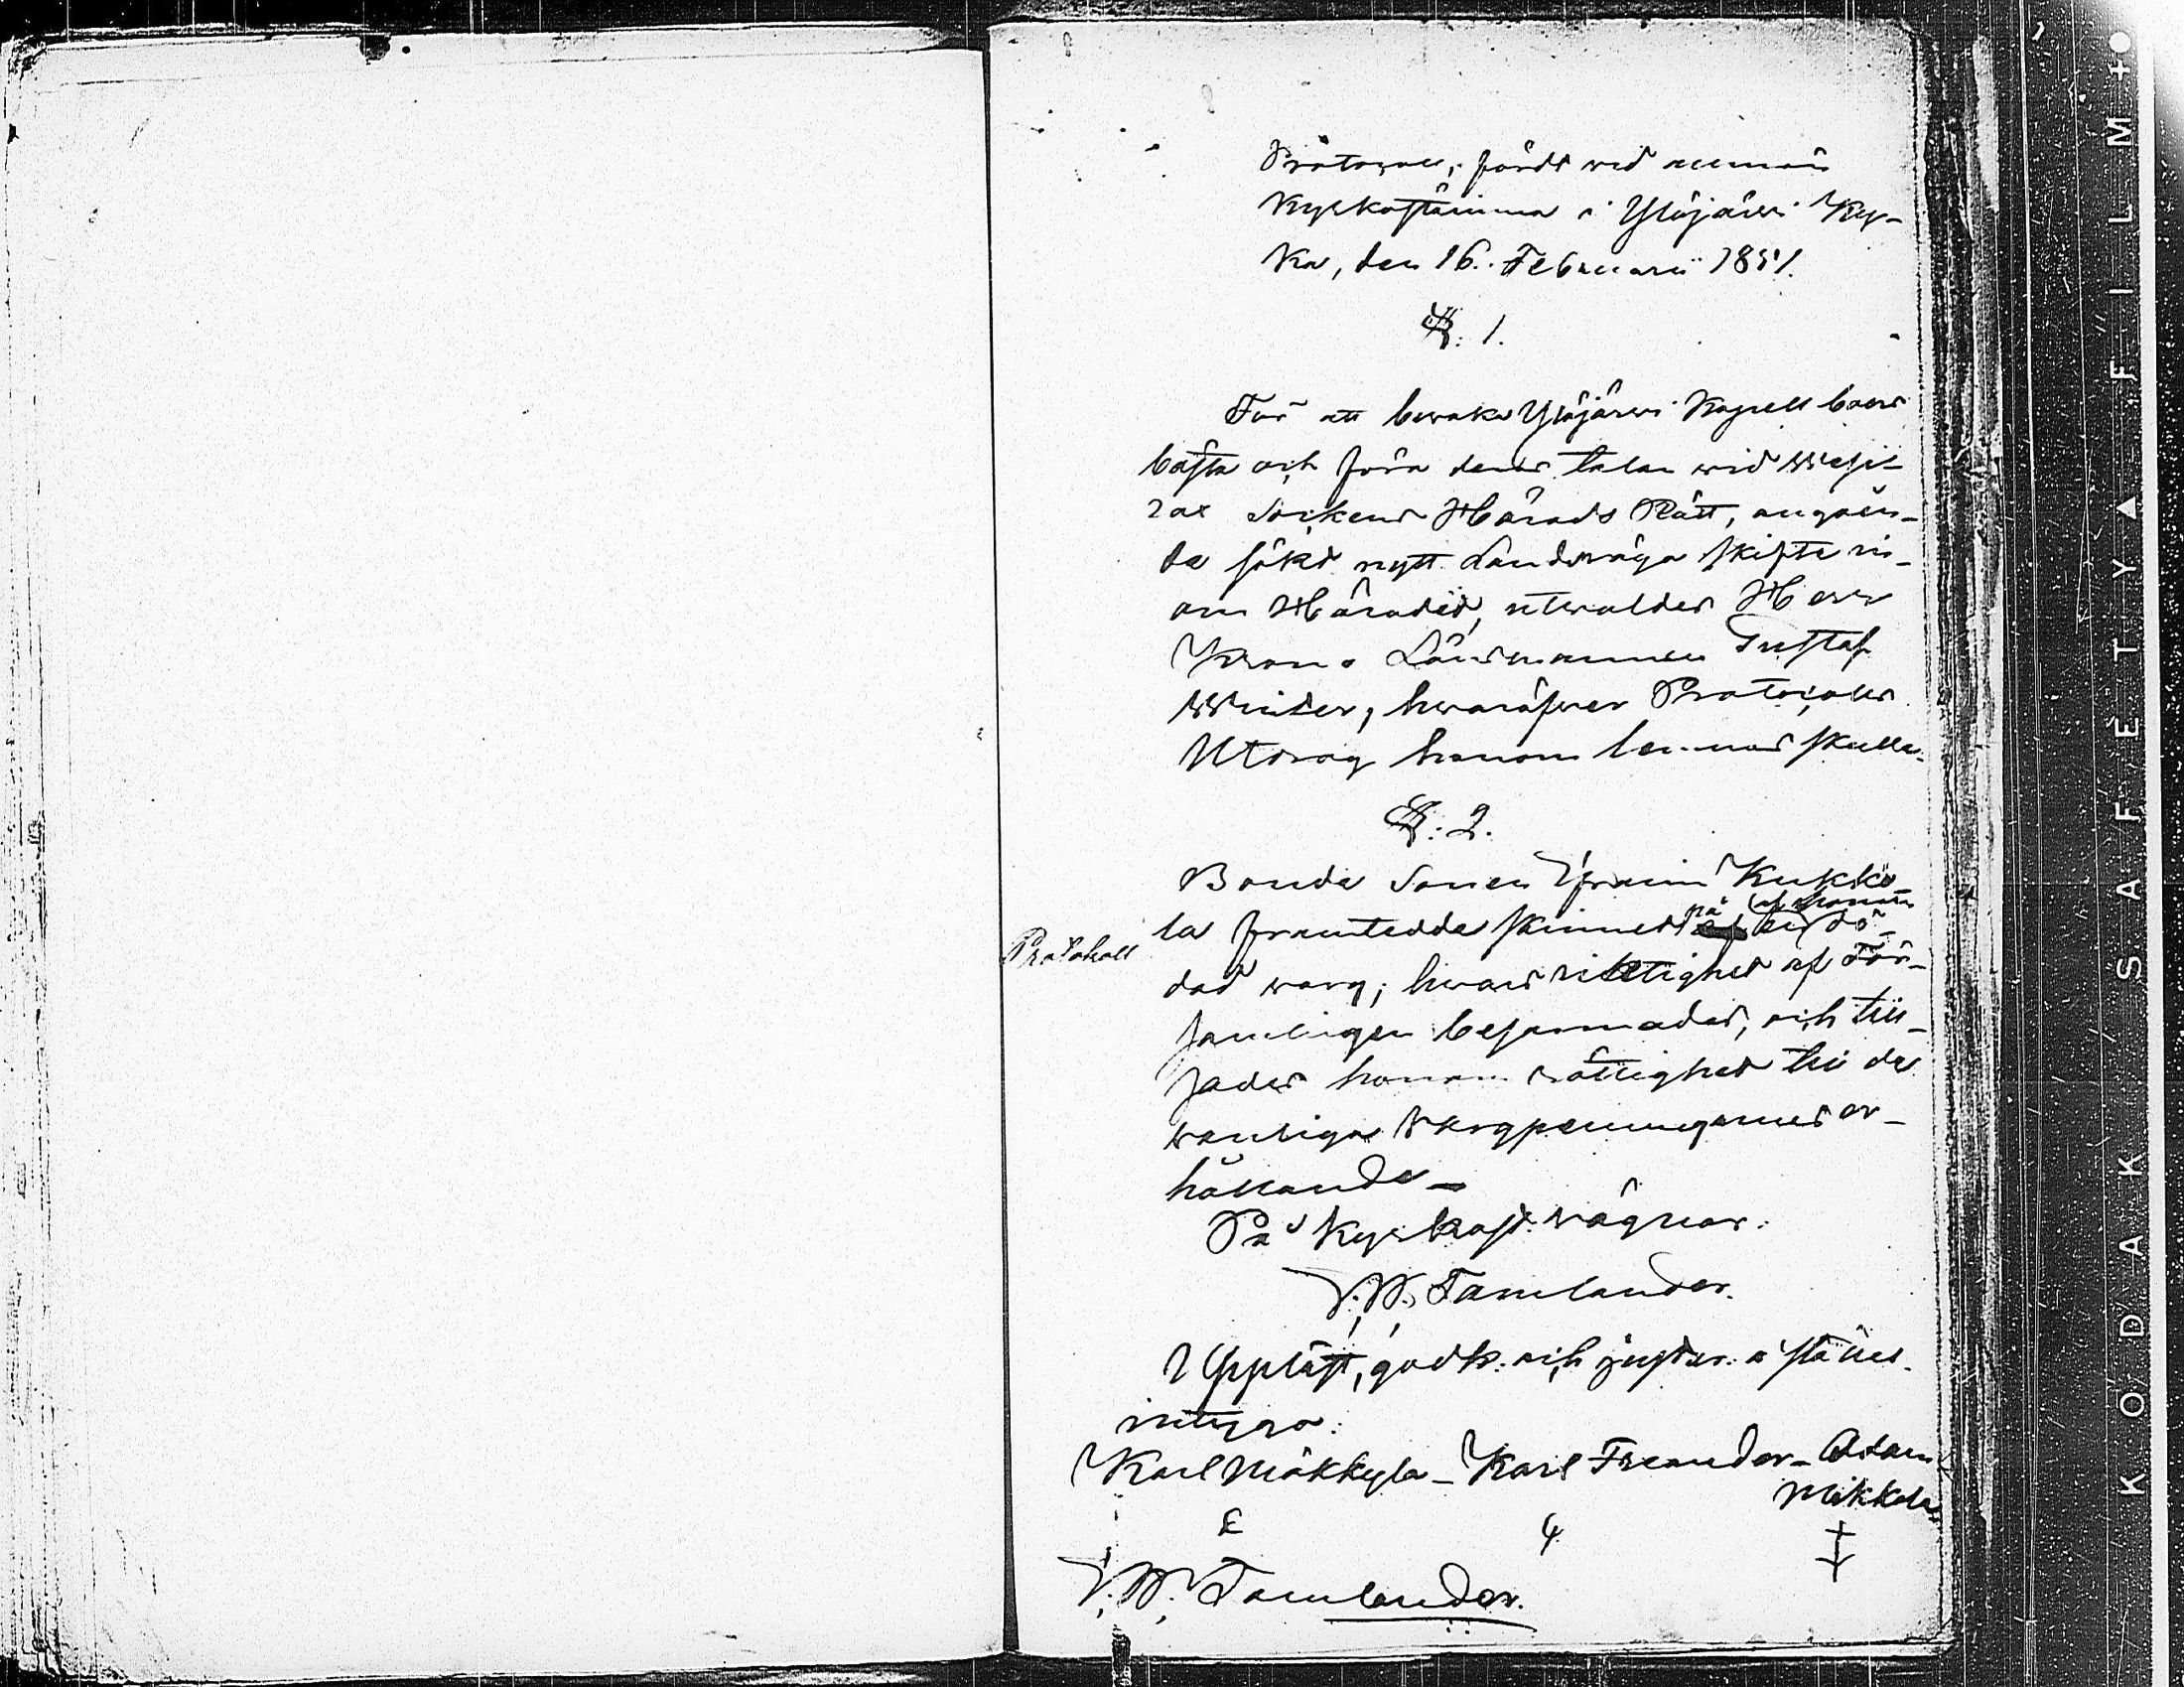 Protocoll, fördt vid allmän
Kyrkostämma i Ylöjärvi Kyr-
ka, den 16. Februarii 1851.
§: 1.
För att bevaka Ylöjärvi Kapell boers
bästa och föra deras talan vid Wesi-
lax Sockens Härads Rätt, angåen-
de sökt nytt Landsväga skifte in-
om Häradet, utvaldes Herr
Krono Länsmannen Gustaf
Winter, hvaröfver Protocolls
Utdrag honom lemnas skulle.
§: 2.
Bonde Sonen Efraim Kukko-
la framtedde skinnet på en af honom dö-
Protokoll
dad varg; hvars riktighet af För-
samlingen besannades, och till-
sades honom rättighet till de
vanliga Vargpenningarnes er-
hållande_
På Kyrkost: vägnar:
F. W. Tamlander.
Uppläst, godk: och juster: a ställe.
intyga:
Karl Mäkkylä_ Karl Freander_ Adam
Mikkola
F. W. Tamlander.
KODAK SAFETY ▲ FILM +